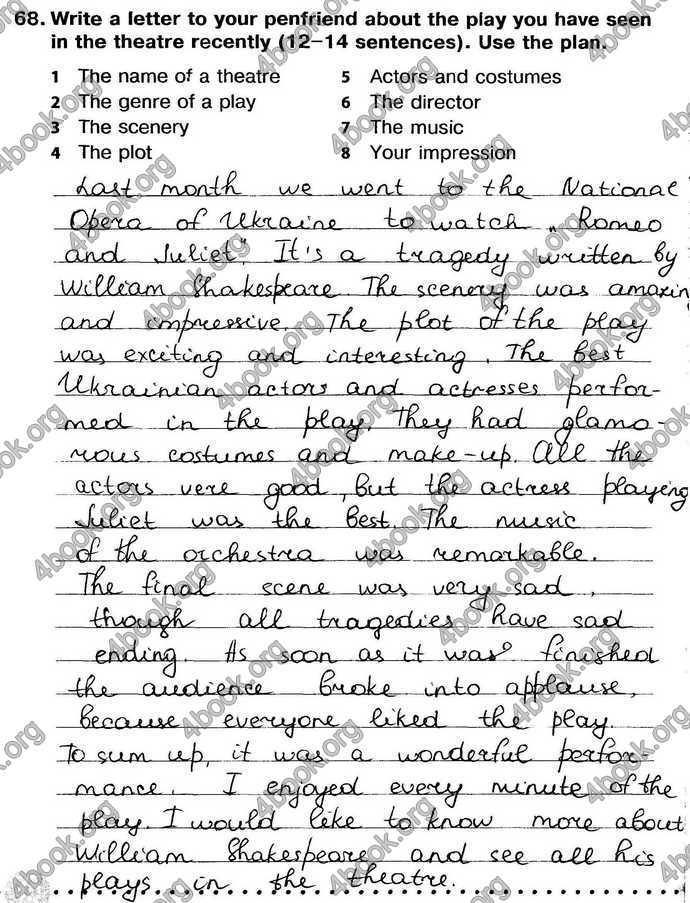 68. Write a letter to your penfriend about the play you have seen
in the theatre recently (12–14 sentences). Use the plan.
1 The name of a theatre 5 Actors and costumes
2 The genre of a play 6 The director
3 The scenery 7 The music
4 The plot 8 Your impression
Last month we went to the National
Opera of Ukraine to watch „Romeo
and Juliet". It's a tragedy written by
William Shakespeare. The scenery was amazin
and impressive. The plot of the play
was exciting and interesting. The best
Ukrainian actors and actresses perfor-
med in the play. They had glamo-
rous costumes and make-up. All the
actors vere good, but the actress playeing
Juliet was the best. The music
of the orchestra was remarkable.
The final scene was very sad,
though all tragedies have sad
ending. As soon as it was finished
the audience broke into applause,
because everyone liked the play.
To sum up, it was a wonderful perfor-
mance. I enjoyed every minute of the
play. I would like to know more about
William Shakespeare and see all his
plays in the theatre.
4book.org